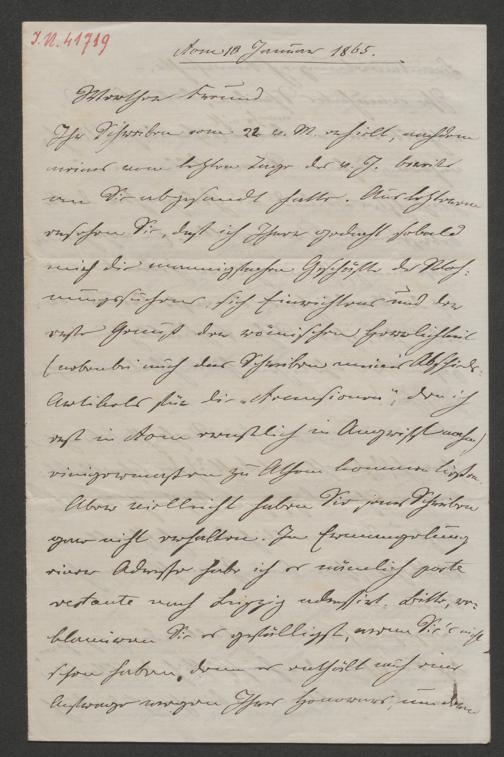 I.N. 41719
Rom 10 Januar 1865.
Werther Freund
Ihr Schreiben vom 22 v. M. erhielt, nachdem
meines vom letzten Tage des v. J. bereits
an Sie abgesandt hatte. Aus letzterem
ersehen Sie, daß ich Ihrer gedacht sobald
mich die mannigfachen Geschäfte des Woh-
nungssuchens, sich Einrichtens und der
erste Genuß der römischen Herrlichkeit
(nebenbei auch das Schreiben meines Abschieds-
Artikels für die „Recensionen“, den ich
erst in Rom ernstlich in Angriff nahm)
einigermassen zu Athem kommen ließen.
Aber vielleicht haben Sie jenes Schreiben
gar nicht erhalten. In Ermangelung
einer Adresse habe ich es nämlich poste
restante nach Leipzig adressirt. Bitte, re-
klamiren Sie es gefälligst, wenn Sie's nicht
schon haben, denn es enthält auch eine
Anfrage wegen Ihres Honorars, um dessen